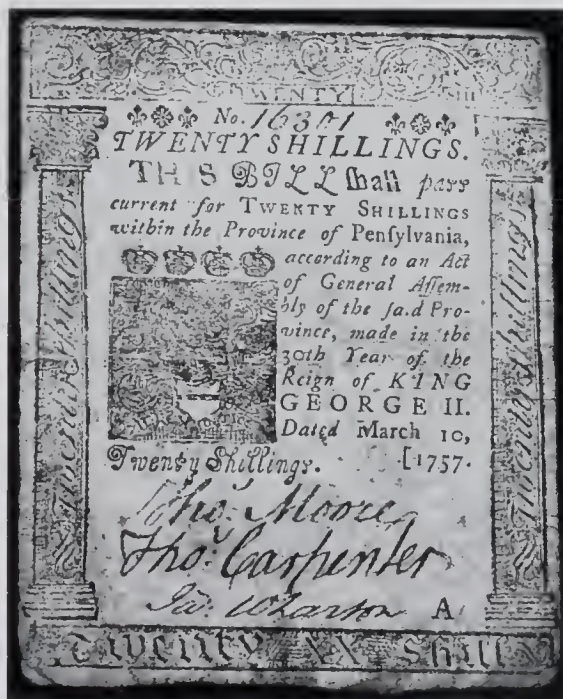 TWENTY
No. 16301
TWENTY SHILLINGS.
THIS BILL shall pass
current for TWENTY SHILLINGS
within the Province of Pensylvania,
according to an Act
of General Assem-
bly of the said Pro-
vince, made in the
30th Year of the
Reign of KING
GEORGE II.
Dated March 10,
Twenty Shillings. [1757.
Thos. Moore
Thos. Carpenter
Ja. Wharton A
Twenty XX Shill
Twenty Shillings
Twenty Shillings